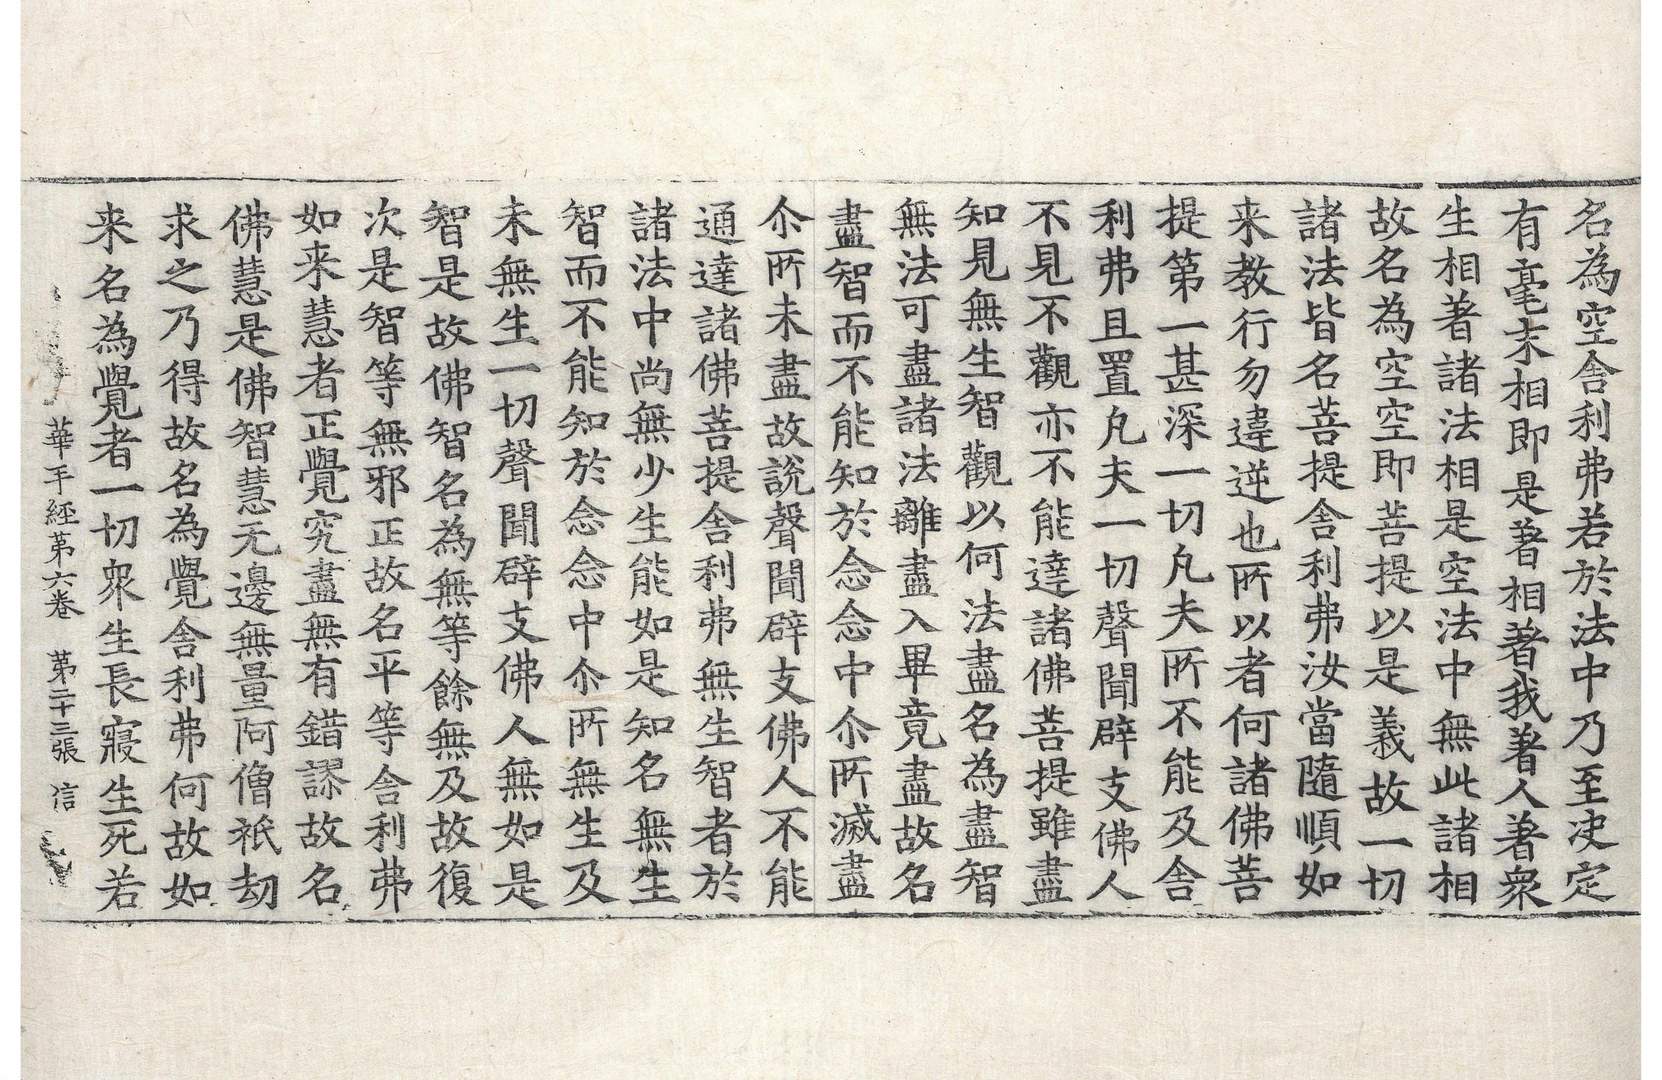 名為空舍利弗若於法中乃至决定
有毫末相即是著相著我著人著衆
生相著諸法相是空法中無此諸相
故名為空空即菩提以是義故一切
諸法皆名菩提舍利弗汝當隨順如
来教行勿違逆也所以者何諸佛菩
提第一甚深一切凡夫所不能及舍
利弗且置凡夫一切聲聞辟支佛人
不見不觀亦不能達諸佛菩提雖盡
知見無生智觀以何法盡名為盡智
無法可盡諸法離盡入畢竟盡故名
盡智而不能知於念念中尒所滅盡
尒所未盡故說聲聞辟支佛人不能
通達諸佛菩提舍利弗無生智者於
諸法中尚無少生能如是知名無生
智而不能知於念念中尒所無生及
未無生一切聲聞辟支佛人無如是
智是故佛智名為無等餘無及故復
次是智等無邪正故名平等舍利弗
如来慧者正覺究盡無有錯謬故名
佛慧是佛智慧无邊無量阿僧祇劫
求之乃得故名為覺舍利弗何故如
来名為覺者一切衆生長寢生死若
華手経第六卷 第二十三張 信